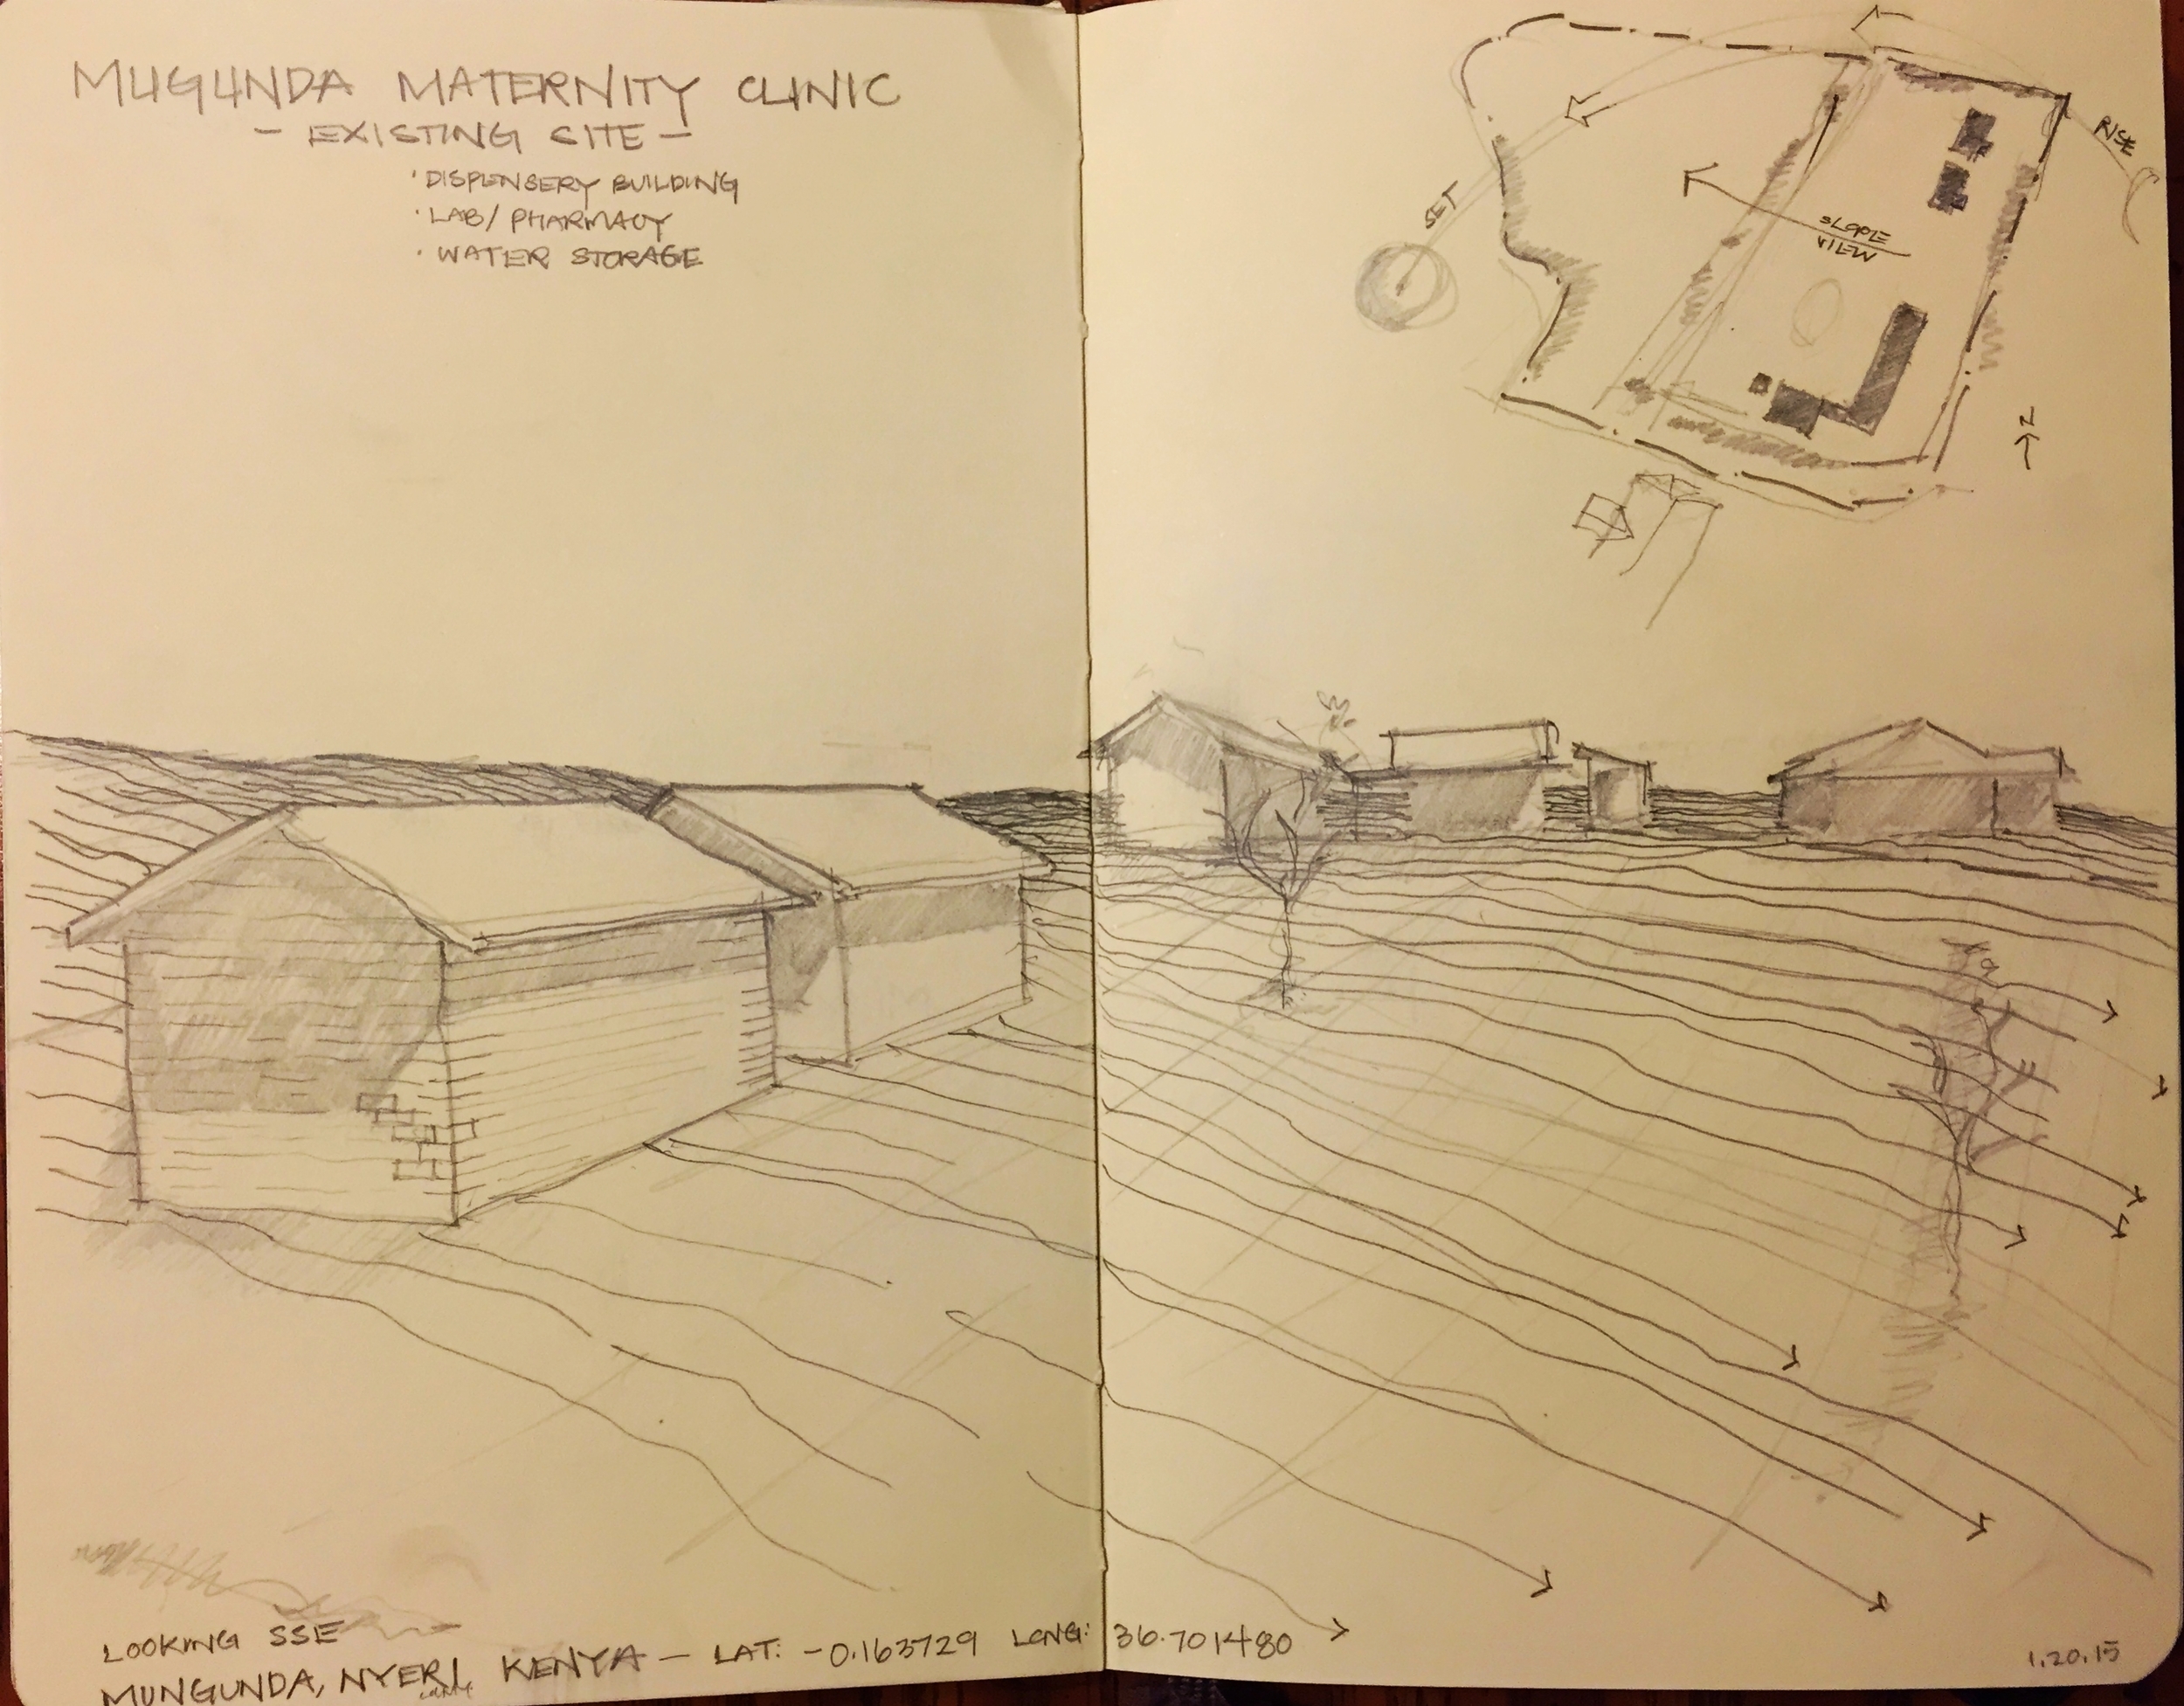 MUGUNDA MATERNITY CLINIC
- EXISTING SITE -
· DISPENSERY BUILDING
· LAB/PHARMACY
· WATER STORAGE
RISE
SET
SLOPE
VIEW
N
LOOKING SSE
MUNGUNDA, NYERI, KENYA - LAT: -0.163729 LONG: 36.701480
1.20.15